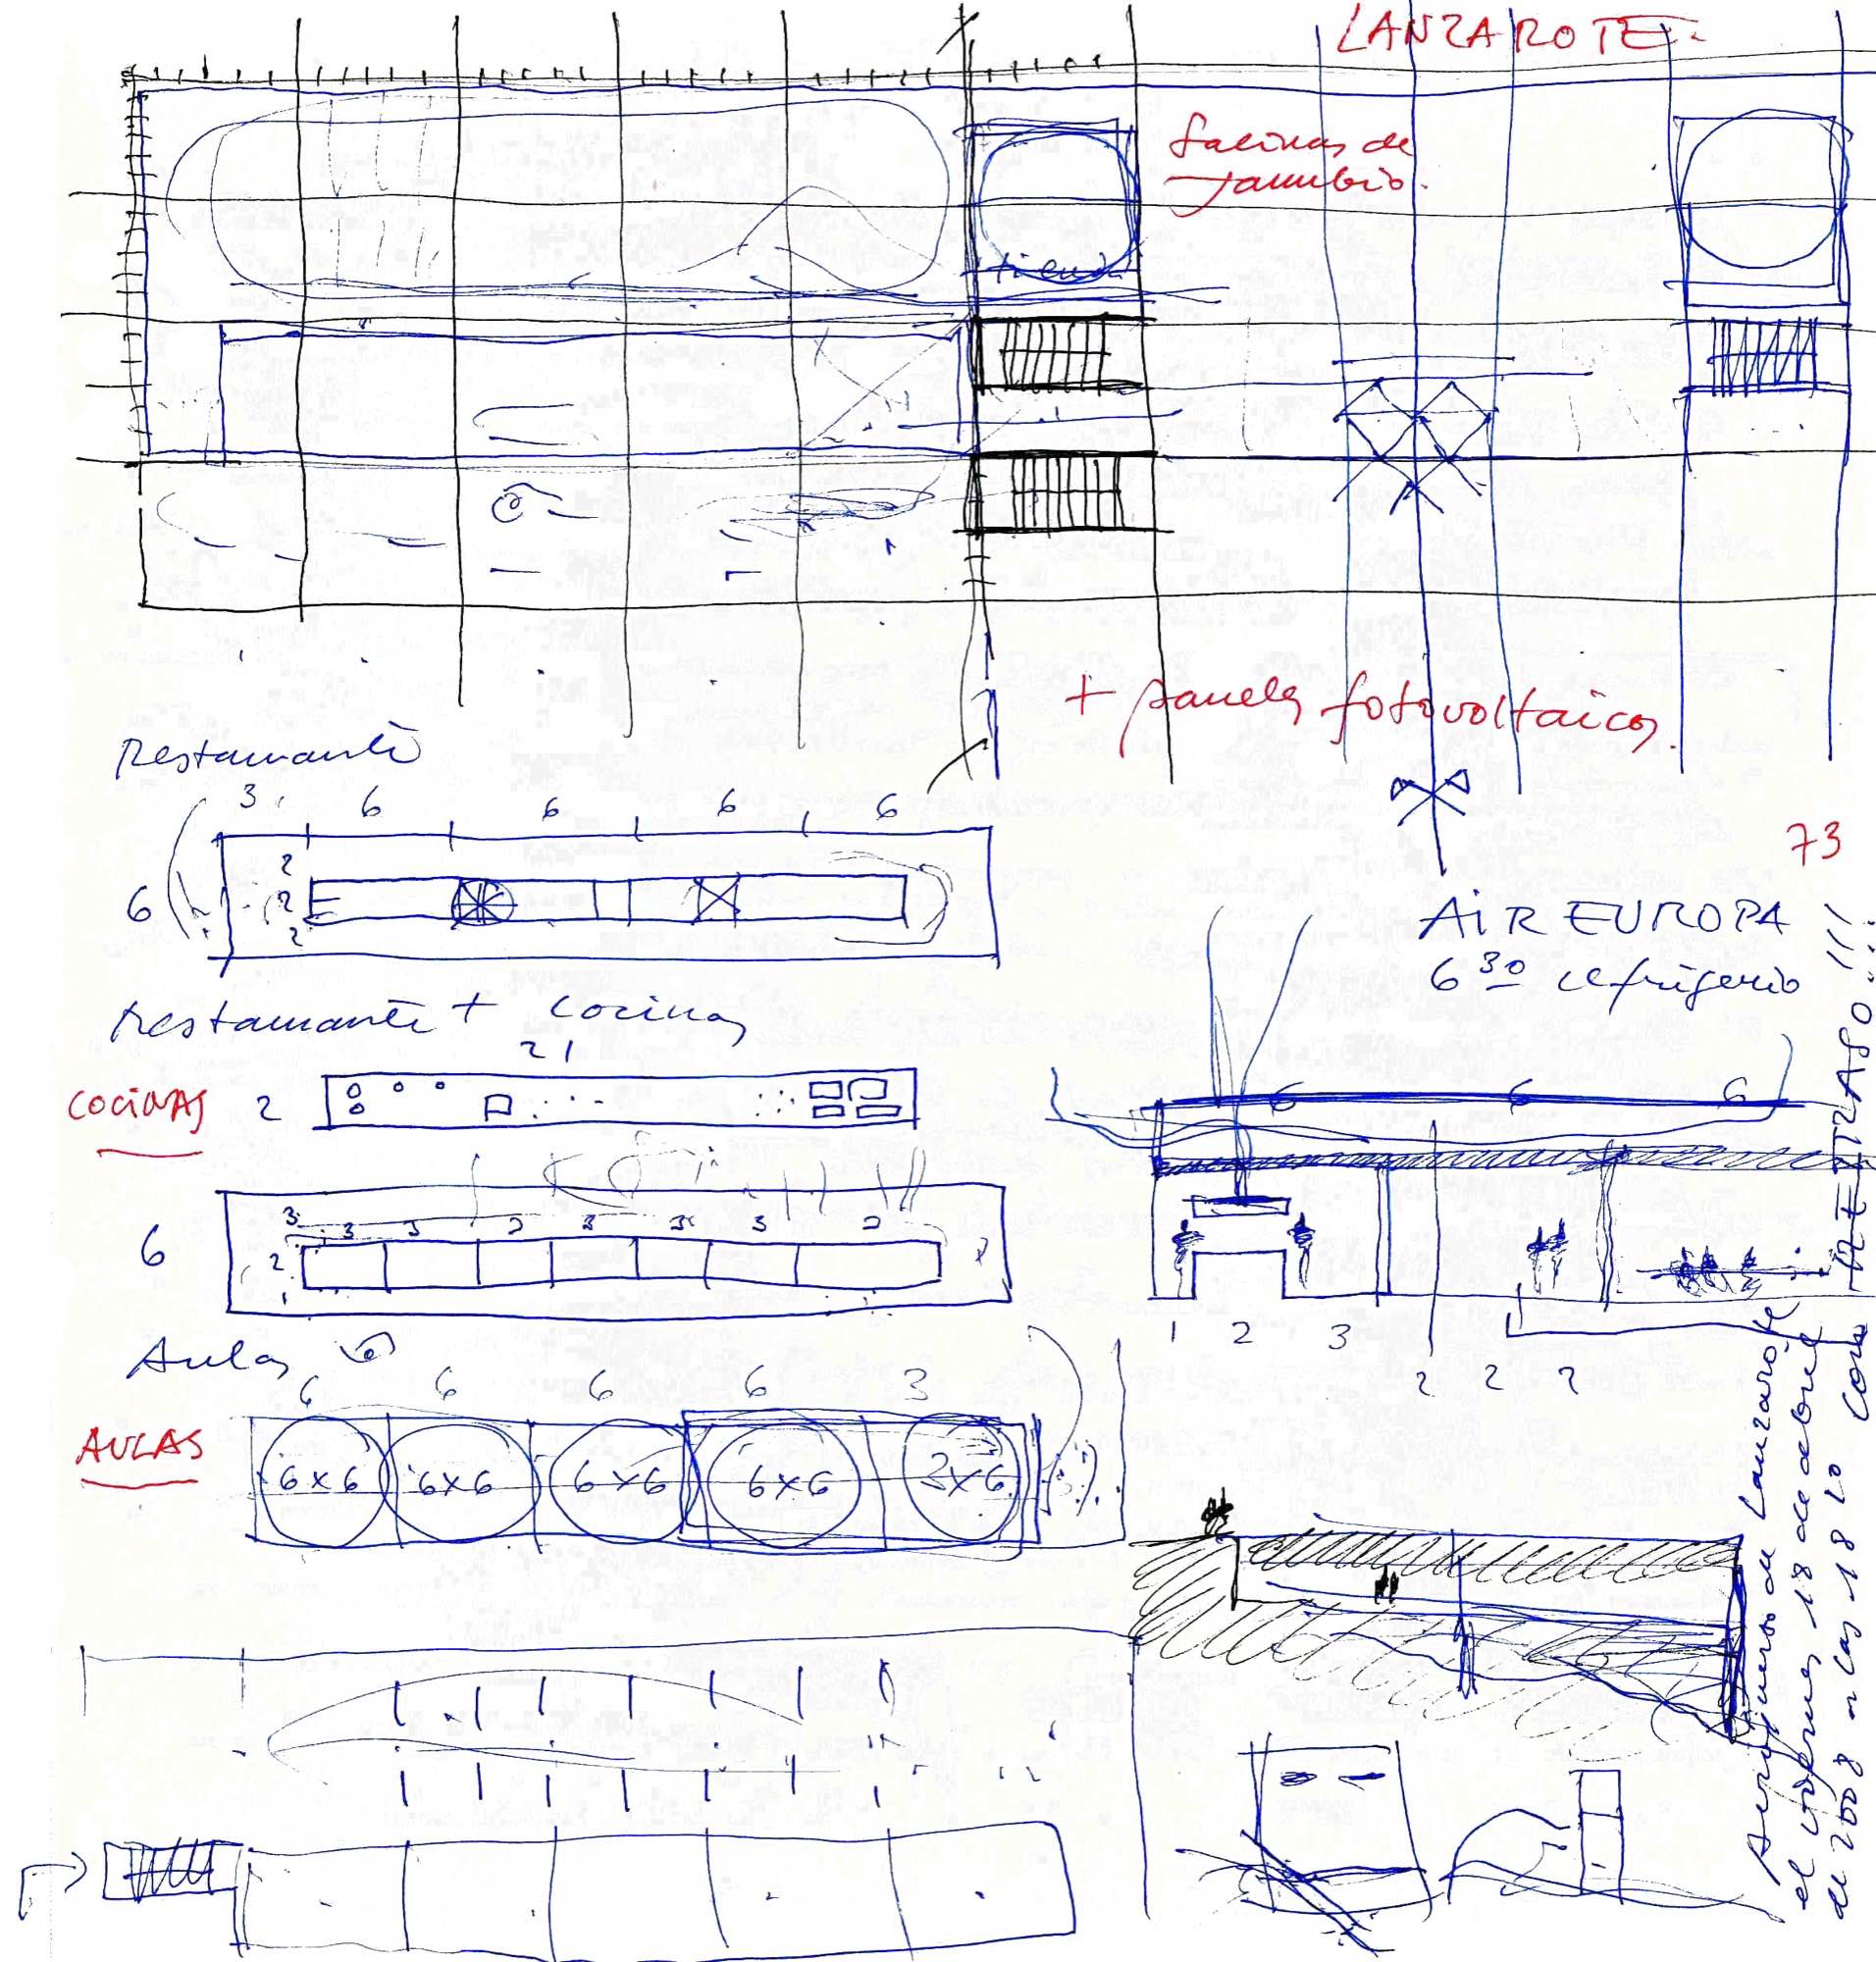 LANZAROTE.
Salinas de
Janubio.
tienda
+ paneles fotovoltaicos.
Restaurante
3 6 6 6 6
2
6 2
2
73
AIR EUROPA
6 30 refrigerio
Restaurante + cocinas
21
COCINAS 2
6 6 6
3 3 3 2 3 3 3 2
6 2
1 2 3
2 2 2
Aulas
6 6 6 6 3
AULAS 6x6 6x6 6x6 6x6 3x6
Aeropuerto de Lanzarote
el viernes 18 de abril
de 2008 a las 18 20 con
RETRASO!!!